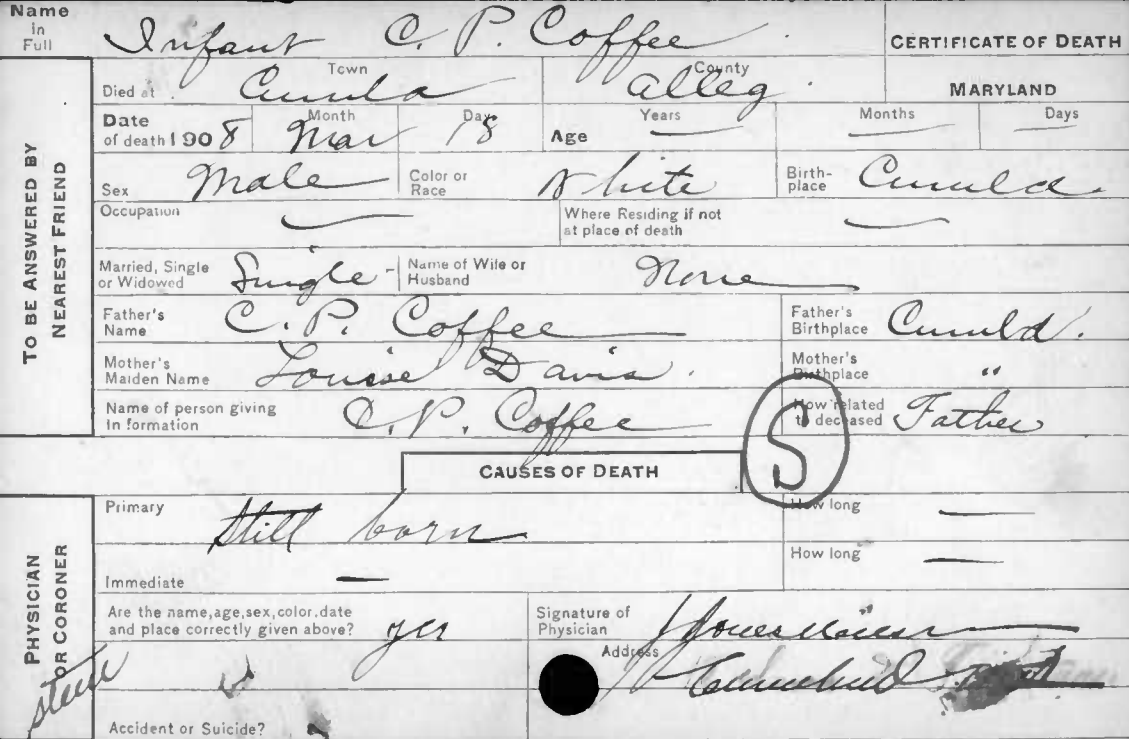 Name in Full Infant C. P. Coffee CERTIFICATE OF DEATH
TO BE ANSWERED BY NEAREST FRIEND
Died at Town County Alleg MARYLAND
Date of death 1908 Month Mar Day 18 Age Years — Months — Days —
Sex Male Color or Race White Birth-place Cumbld
Occupation — Where Residing if not at place of death —
Married, Single or Widowed Single - Name of Wife or Husband None
Father's Name C. P. Coffee Father's Birthplace Cumbld.
Mother's Maiden Name Louise Davis. Mother's Birthplace "
Name of person giving Information C. P. Coffee How related to deceased Father
S
CAUSES OF DEATH
PHYSICIAN OR CORONER
Primary Still born How long —
Immediate — How long —
Are the name, age, sex, color, date and place correctly given above? yes Signature of Physician
Address
Accident or Suicide?